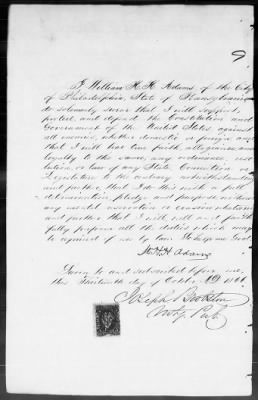 I William H. H. Adams of the City
of Philadelphia, State of Pennsylvania
do solemnly swear that I will support,
protect and defend the Constitution and
Government of the United States against
all enemies, whether domestic or foreign and
that I will bear true faith allegiance and
loyalty to the same, any ordinance, reso
lution or law of any State Convention or
Legislature to the contrary notwithstanding
and further that I do this with a full
determination, pledge and purpose without
any mental reservation or evasion whatsoever
and further that I will well and faith
fully perform all the duties which may
be required of me by law. So help me God.
W. H. H. Adams
Sworn to and subscribed before me,
this thirteenth day of October AD 186
Joseph
Notry Pub.